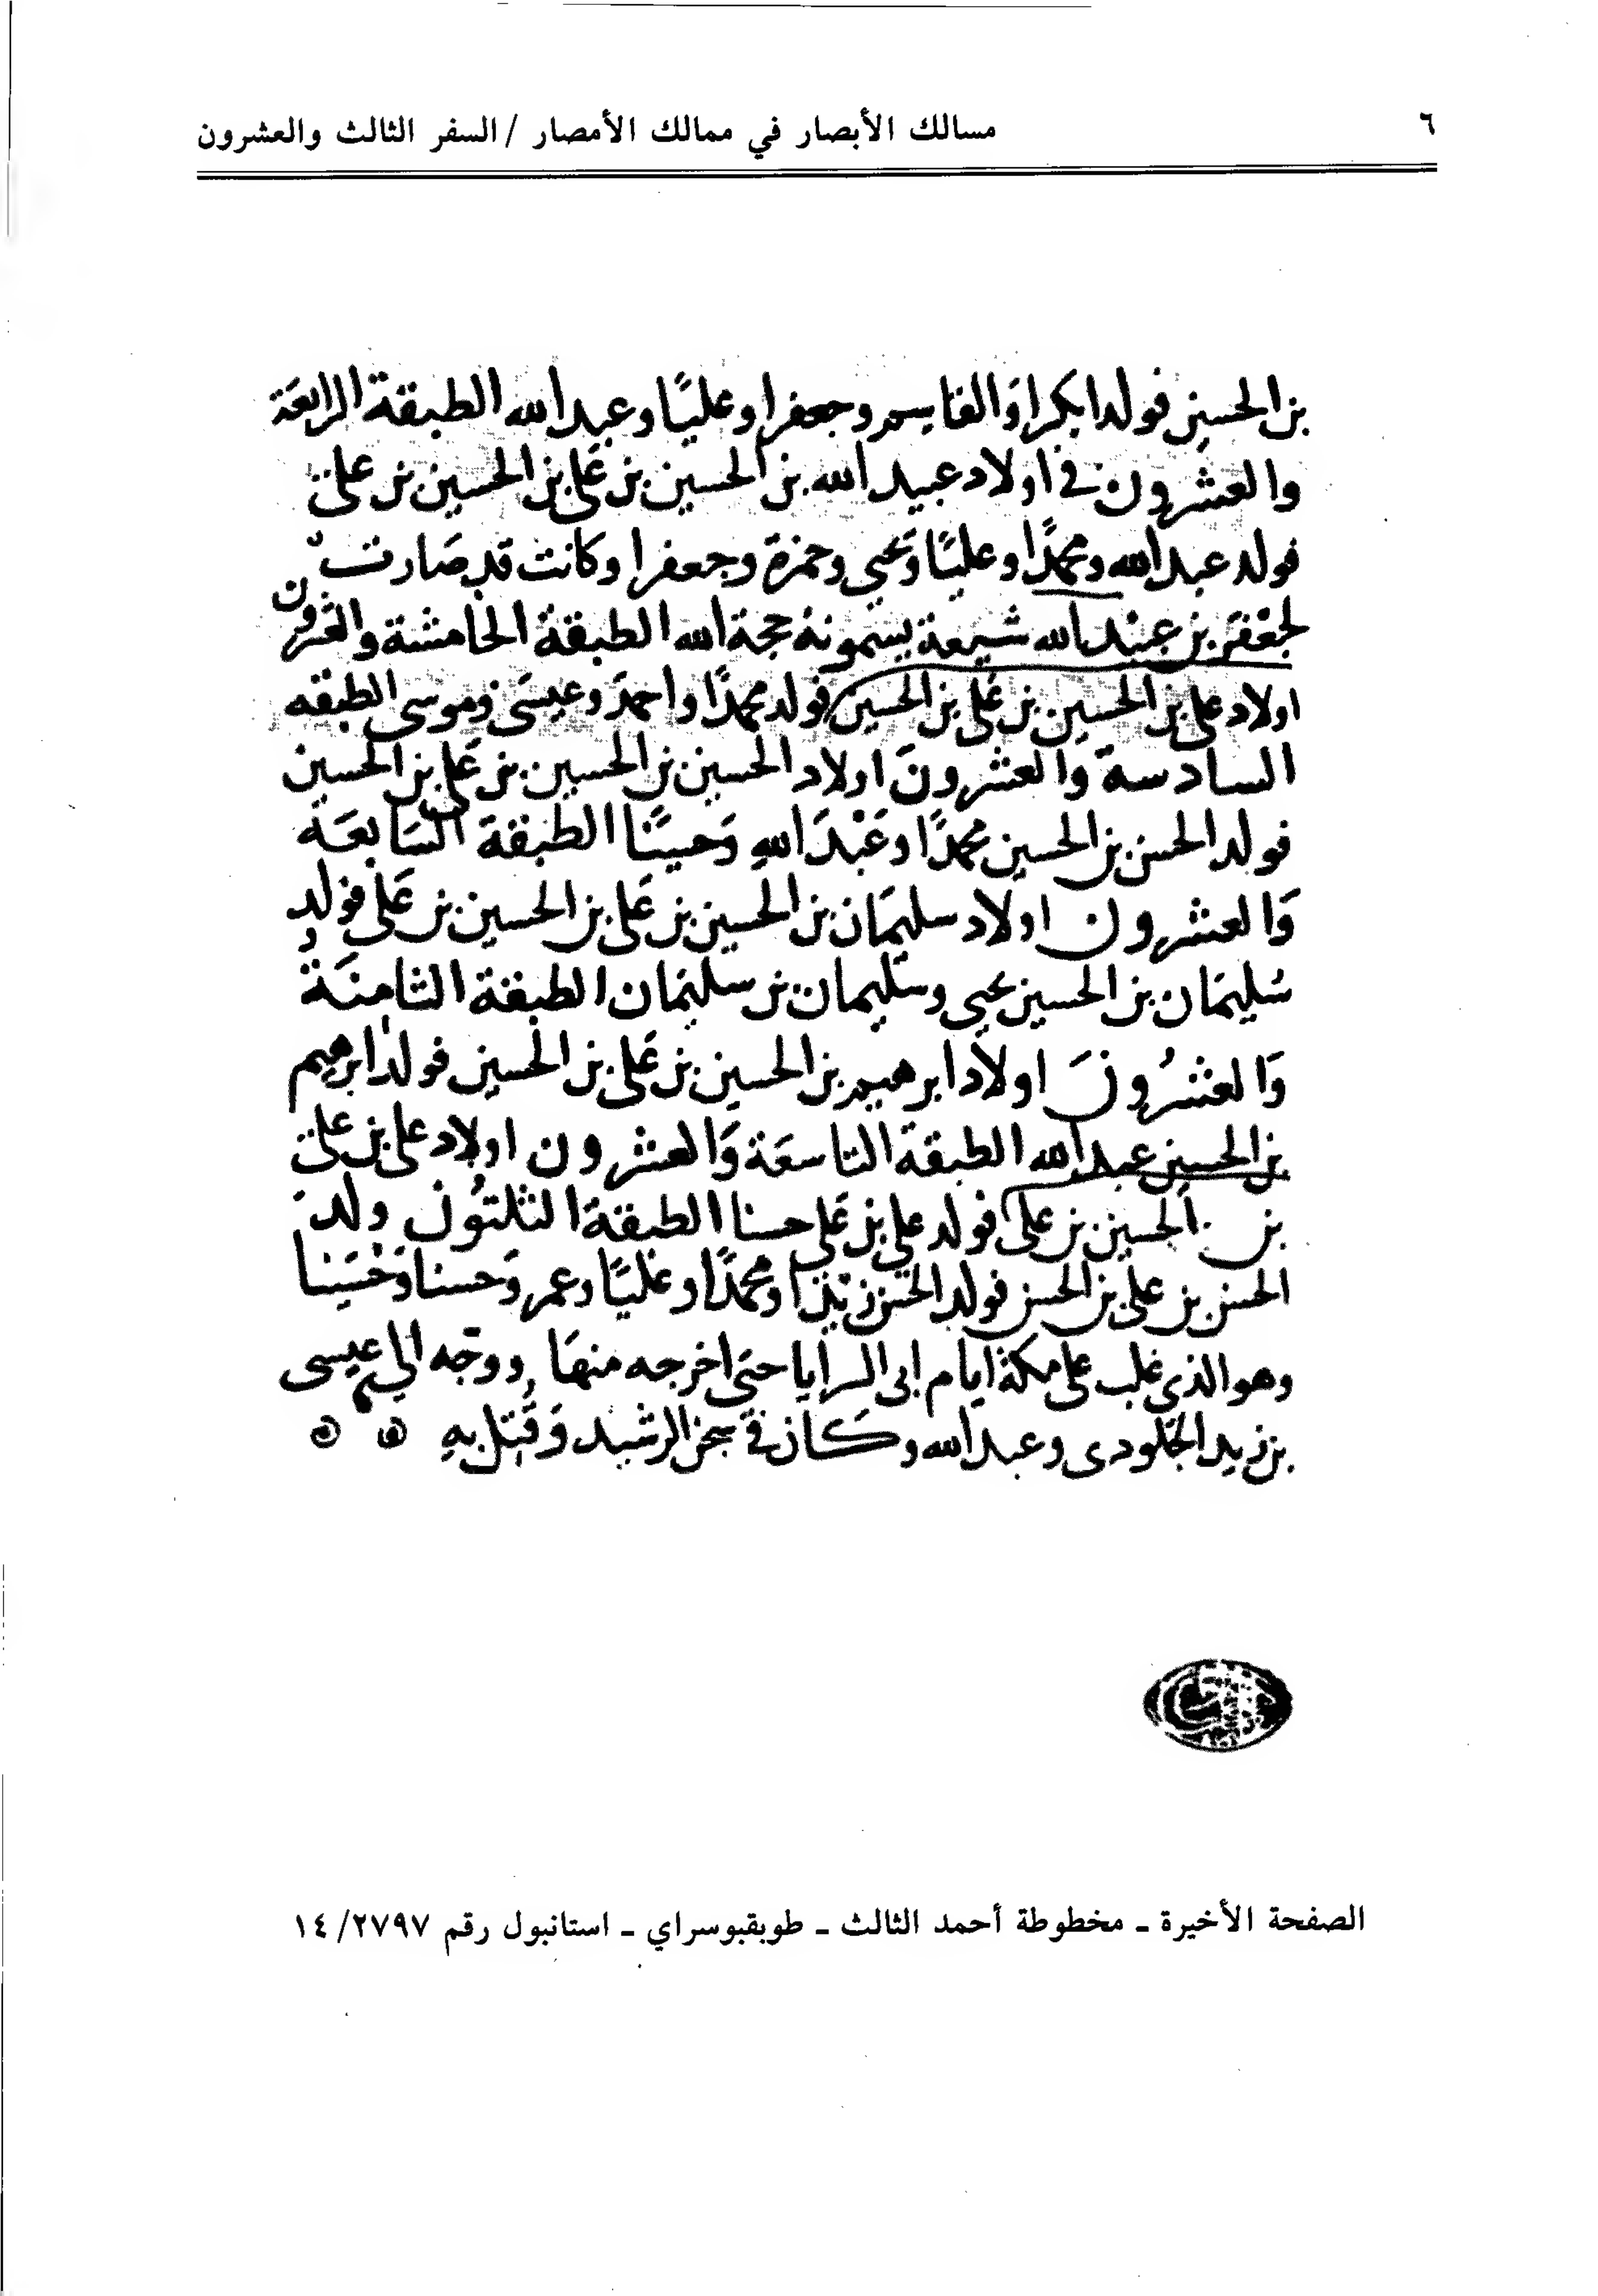 ٦
مسالك الأبصار في ممالك الأمصار / السفر الثالث والعشرون
بن الحسين فولد ابكرا والقاسم وجعفرا وعليا وعبد الله الطبقة الرابعة
والعشرون في اولاد عبيد الله بن الحسين بن علي بن الحسين بن علي
فولد عبد الله ومحمدا وعليا ويحيى وحمزة وجعفرا وكانت قد صارت
لجعفر بن عبد الله شيعة يسمونه حجة الله الطبقة الخامسة والعشرون
اولاد علي بن الحسين بن علي بن الحسين فولد محمدا واحمد وعيسى وموسى الطبقه
السادسة والعشرون اولاد الحسين بن الحسين بن علي بن الحسين
فولد الحسن بن الحسين محمدا وعبد الله وحسينا الطبقة السابعة
والعشرون اولاد سليمان بن الحسين بن علي بن الحسين بن علي فولد
سليمان بن الحسين يحيى وسليمان بن سليمان الطبقة الثامنة
والعشرون اولاد ابرهيم بن الحسين بن علي بن الحسين فولد ابرهيم
بن الحسين عبد الله الطبقة التاسعة والعشرون اولاد علي بن علي
بن الحسين بن علي فولد علي بن علي حسنا الطبقة الثلثون ولد
الحسن بن علي بن الحسن فولد الحسن زيدا ومحمدا وعليا وعمر وحسنا وحسينا
وهو الذي غلب على مكة ايام ابى السرايا حتى اخرجه منها ووجه الي عيسى
بن زيد الجلودى وعبد الله وكان في سجن الرشيد وقتل به
الصفحة الأخيرة - مخطوطة أحمد الثالث - طوبقبوسراي - استانبول رقم ٢٧٩٧/ ١٤